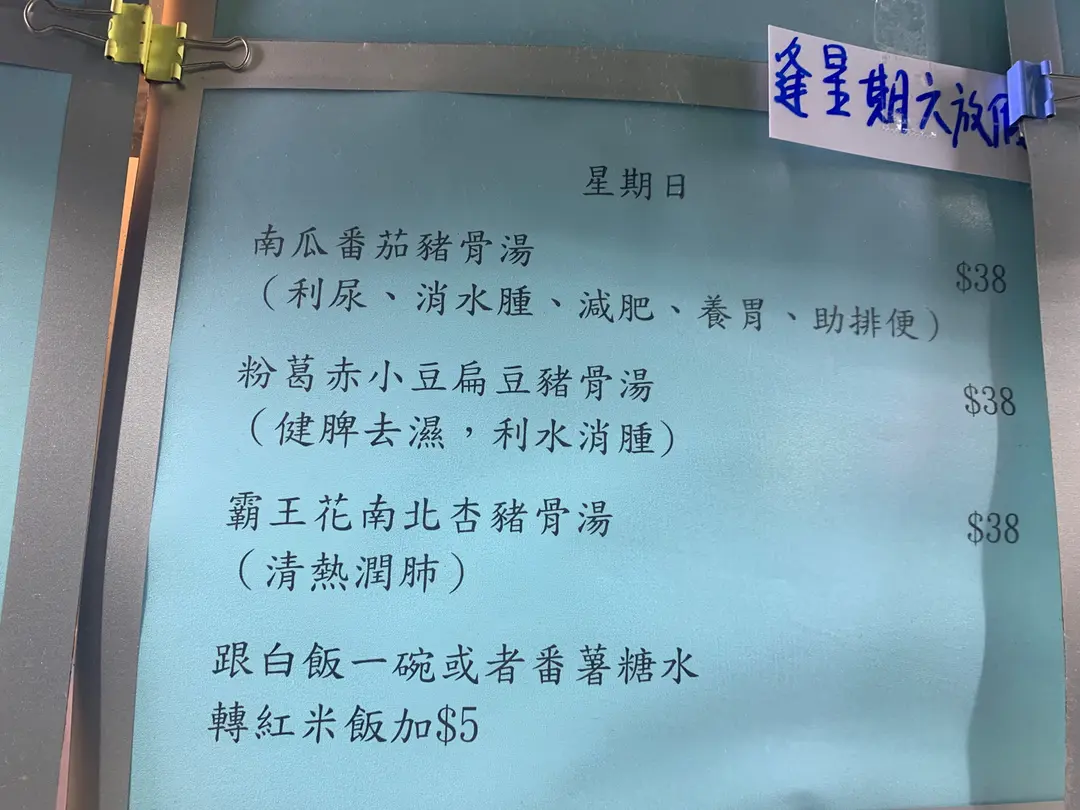 逢星期六放假
星期日
南瓜番茄豬骨湯 $38
（利尿、消水腫、減肥、養胃、助排便）
粉葛赤小豆扁豆豬骨湯 $38
（健脾去濕，利水消腫）
霸王花南北杏豬骨湯 $38
（清熱潤肺）
跟白飯一碗或者番薯糖水
轉紅米飯加$5